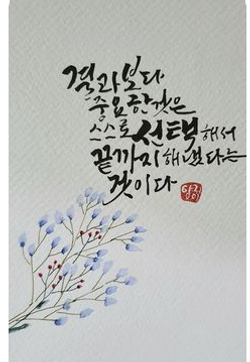 결과보다
중요한것은
스스로 선택해서
끝까지해냈다는
것이다